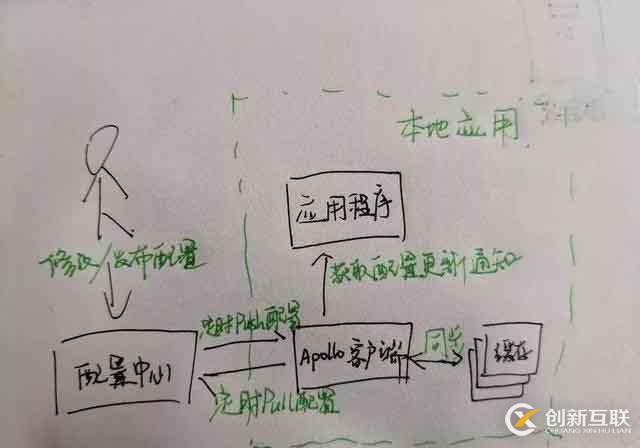 本地应用
应用程序
修改/发布配置
获取配置更新通知
定时Push配置
配置中心
Apollo客户端
同步
缓存
定时Pull配置
创新互联
CHUANG XIN HU LIAN